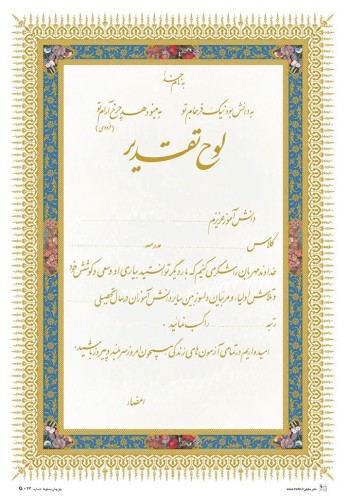 به نام خدا
به دانش بود نیک فرجام تو به مینو دهد چرخ آرام تو
(فردوسی)
لوح تقدیر
دانش آموز عزیزم
کلاس مدرسه
خداوند مهربان را شکر می کنیم که بار دیگر توانستید با یاری او و سعی و کوشش خود
و تلاش اولیا، و مربیان دلسوز من بین سایر دانش آموزان در سال تحصیلی
رتبه را کسب نمائید.
امیدواریم در تمامی آزمون های زندگی همچون امروز سربلند و پیروز باشید.
امضاء